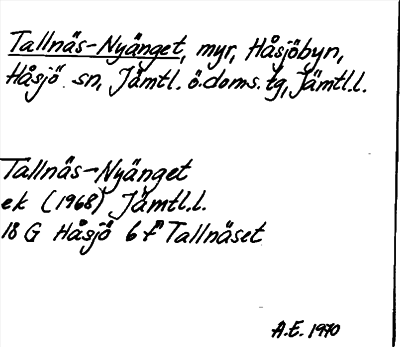 Tallnäs-Nyänget, myr, Håsjöbyn,
Håsjö sn, Jämtl. ö. doms. tg, Jämtl.l.
Tallnäs-Nyänget
ek (1968) Jämtl.l.
18 G Håsjö 6 f Tallnäset
A.E. 1970